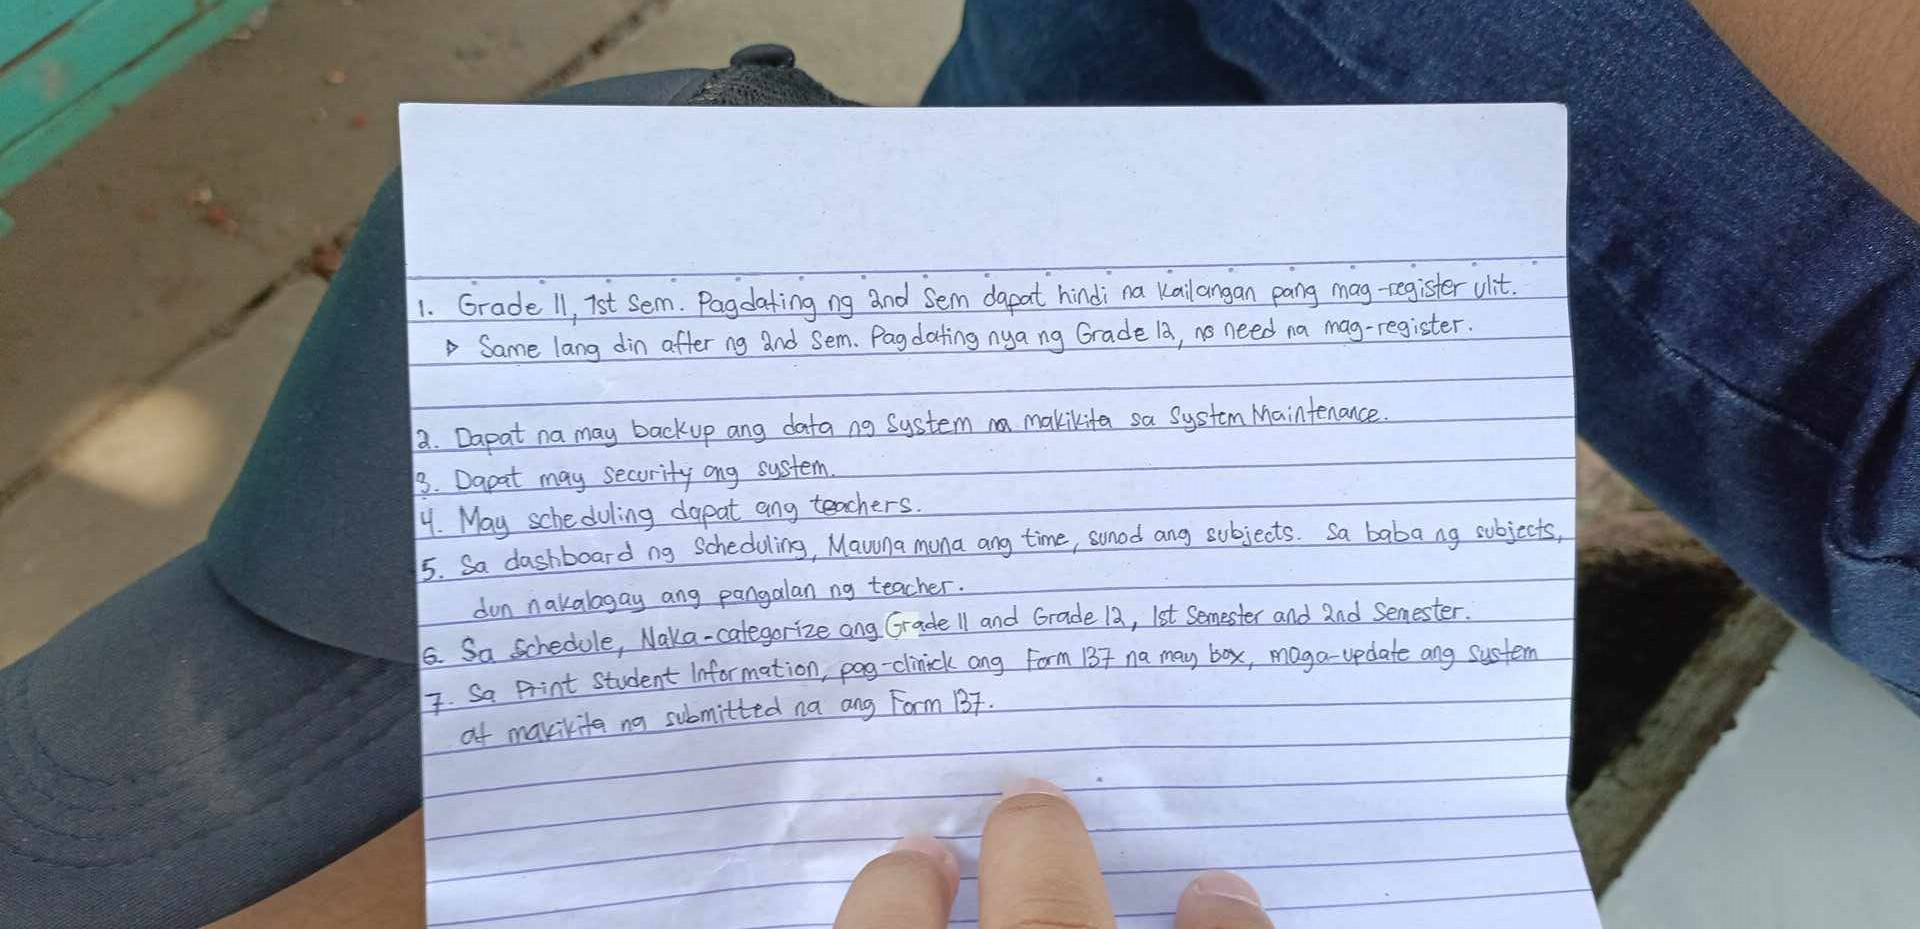 1. Grade 11, 1st Sem. Pagdating ng 2nd Sem dapat hindi na kailangan pang mag-register ulit.
▷ Same lang din after ng 2nd Sem. Pagdating nya ng Grade 12, no need na mag-register.
2. Dapat na may backup ang data ng System na makikita sa System Maintenance.
3. Dapat may security ang system.
4. May scheduling dapat ang teachers.
5. Sa dashboard ng Scheduling, Mauuna muna ang time, sunod ang subjects. Sa baba ng subjects,
dun nakalagay ang pangalan ng teacher.
6. Sa Schedule, Naka-categorize ang Grade 11 and Grade 12, 1st Semester and 2nd Semester.
7. Sa Print Student Information, pag-clinick ang Form 137 na may box, maga-update ang system
at makikita ng submitted na ang Form 137.